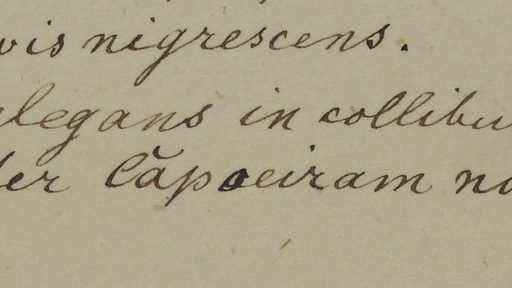 vis nigrescens.
elegans in collibu
der Căpoeiram no